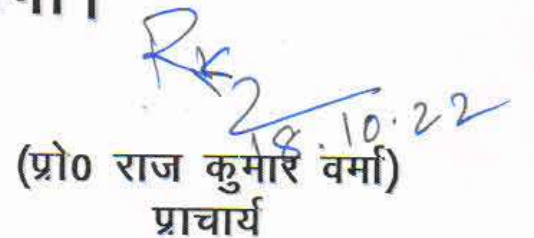 RK
18.10.22
(प्रो0 राज कुमार वर्मा)
प्राचार्य